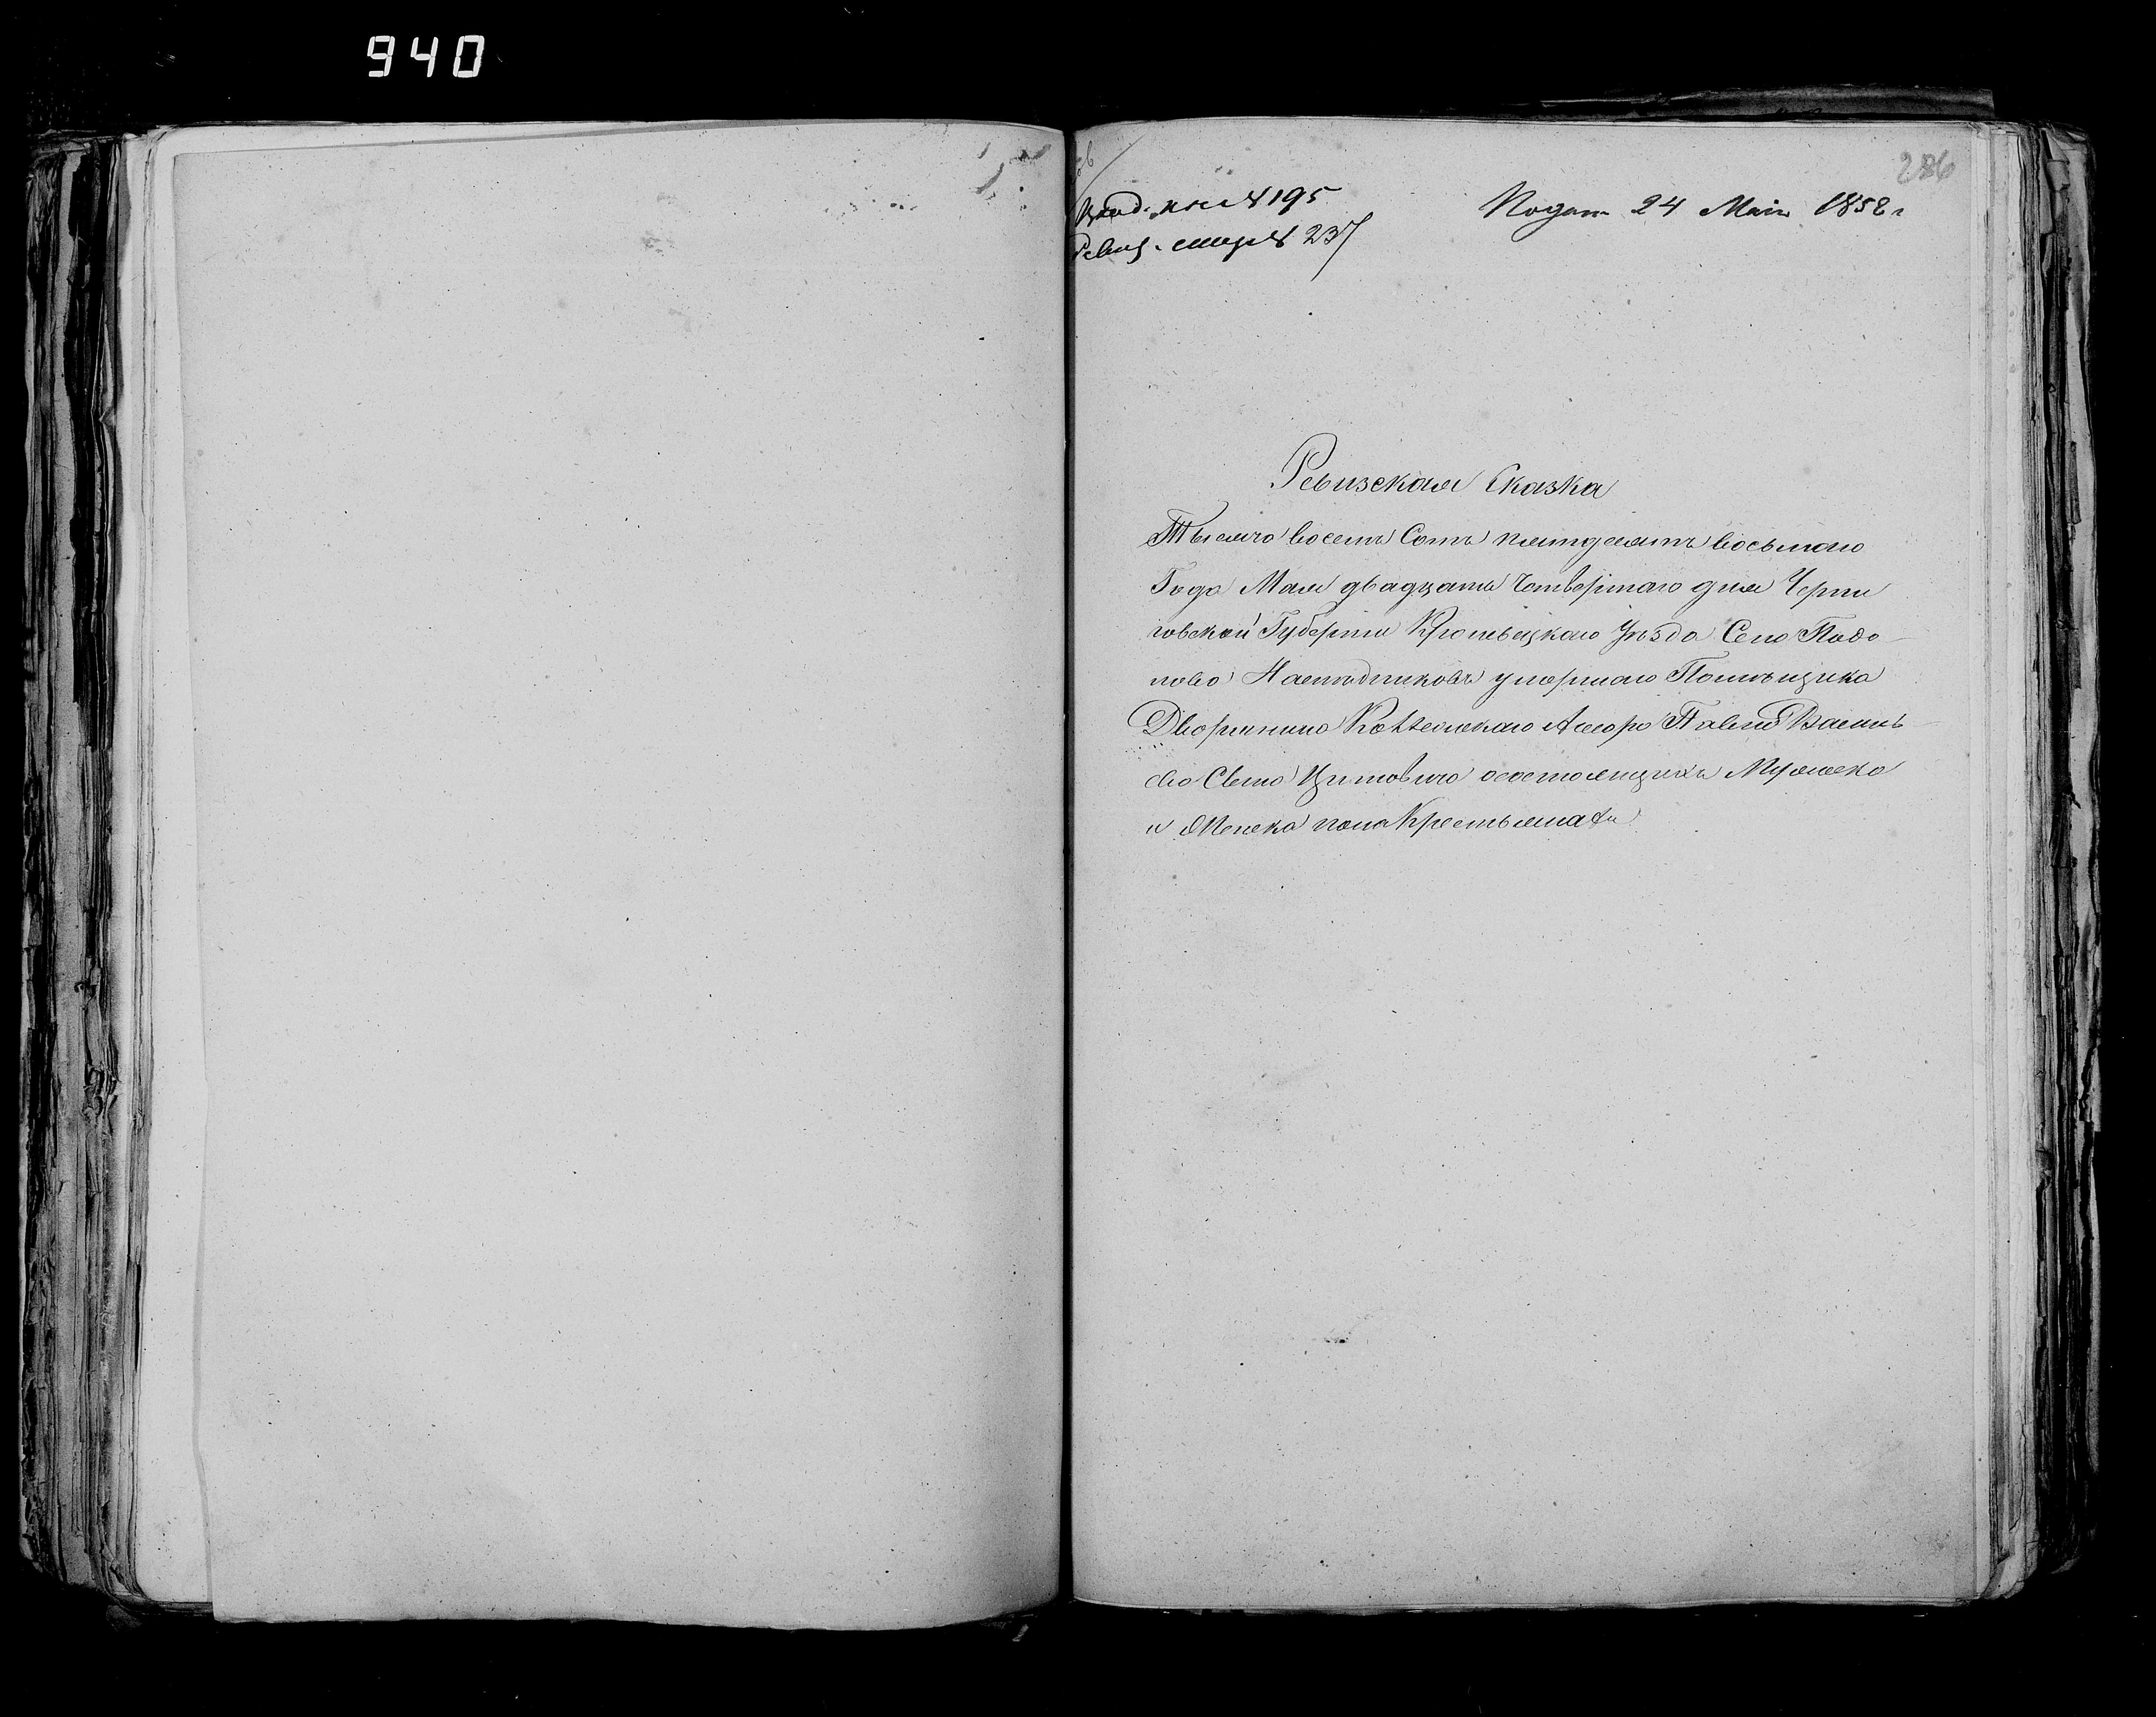 940
286
Вход. № 195
Ревиз. № 237
Подан 24 Маія 1858 г
Ревизская Сказка
Тысяча восемь Сотъ пятдесятъ восьмаго
Года Мая двадцать Четвертаго дня Черни
говской Губерніи Кролевецкаго Уѣзда Села Подо
лова Наслѣдниковъ умершаго Помѣщика
Дворянина Коллежскаго Асесора Павла Василь
ева Сына Цитовича о состоящихъ Мужеска
и Женска пола Крестьянахъ